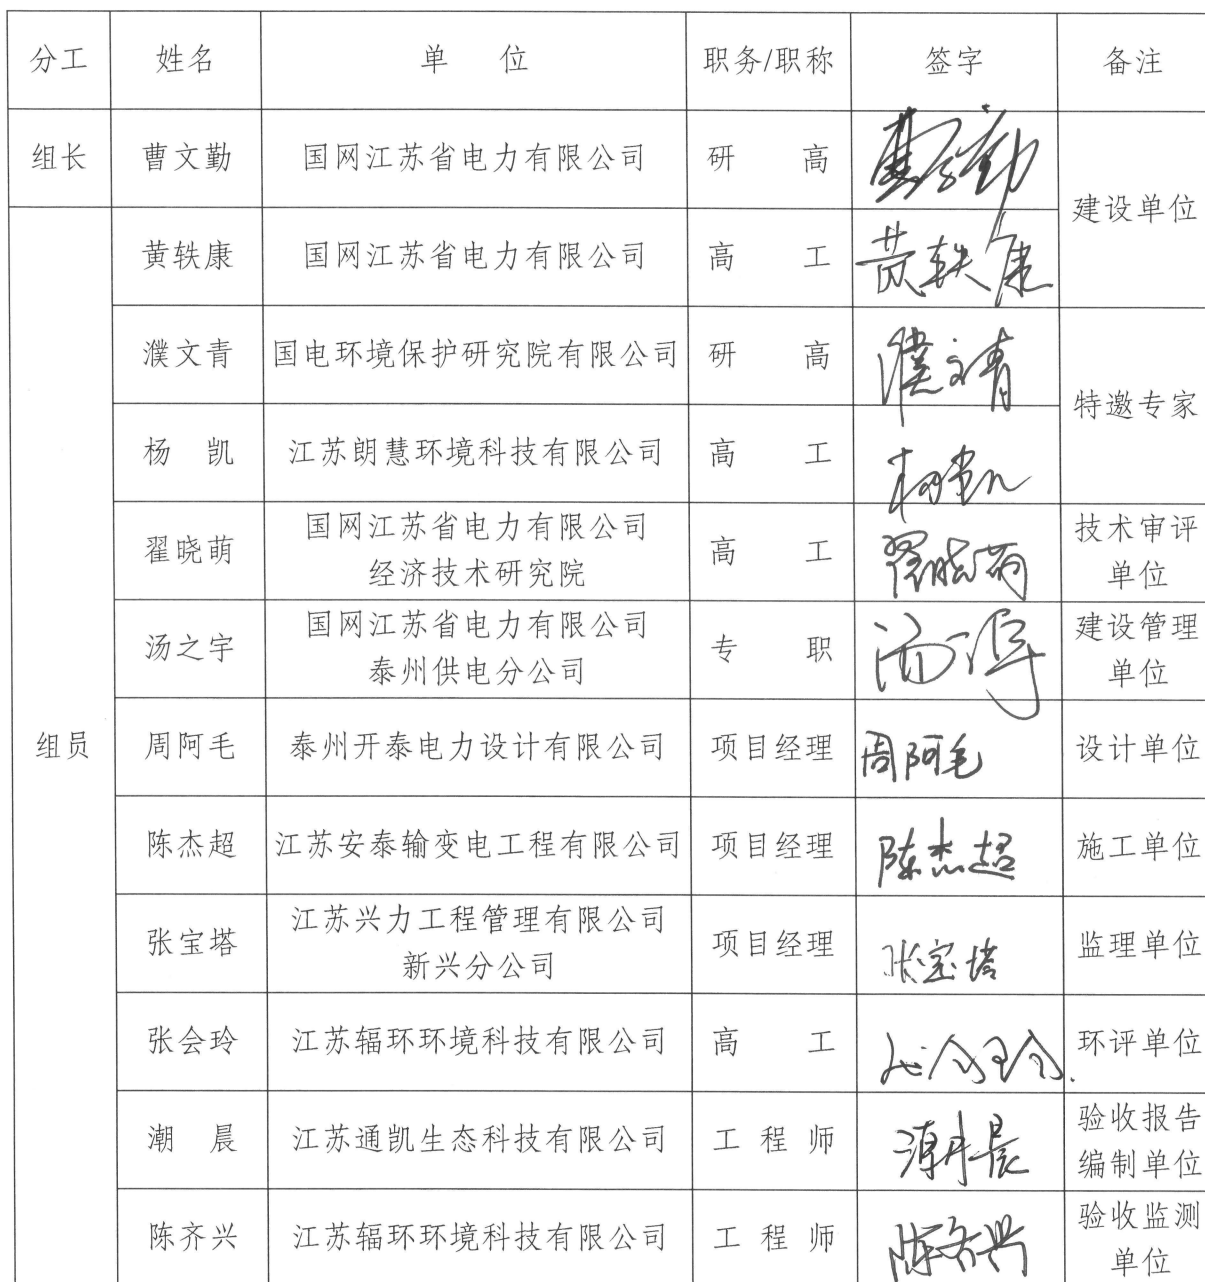 分工 姓名 单 位 职务/职称 签字 备注
组长 曹文勤 国网江苏省电力有限公司 研 高 曹文勤 建设单位
组员 黄轶康 国网江苏省电力有限公司 高 工 黄轶康
濮文青 国电环境保护研究院有限公司 研 高 濮文青 特邀专家
杨 凯 江苏朗慧环境科技有限公司 高 工 杨凯
翟晓萌 国网江苏省电力有限公司 高 工 翟晓萌 技术审评
经济技术研究院 单位
汤之宇 国网江苏省电力有限公司 专 职 建设管理
泰州供电分公司 单位
周阿毛 泰州开泰电力设计有限公司 项目经理 周阿毛 设计单位
陈杰超 江苏安泰输变电工程有限公司 项目经理 陈杰超 施工单位
张宝塔 江苏兴力工程管理有限公司 项目经理 张宝塔 监理单位
新兴分公司
张会玲 江苏辐环环境科技有限公司 高 工 张会玲 环评单位
潮 晨 江苏通凯生态科技有限公司 工 程 师 潮晨 验收报告
编制单位
陈齐兴 江苏辐环环境科技有限公司 工 程 师 陈齐兴 验收监测
单位